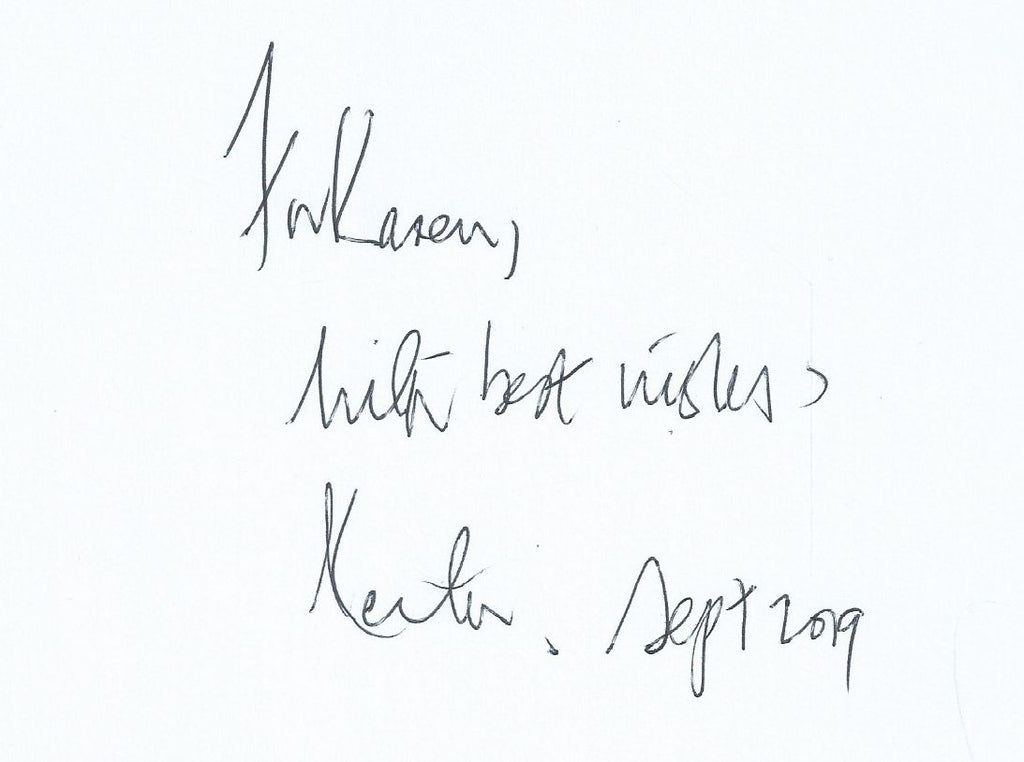 For Karen,
with best wishes,
Sept 2019